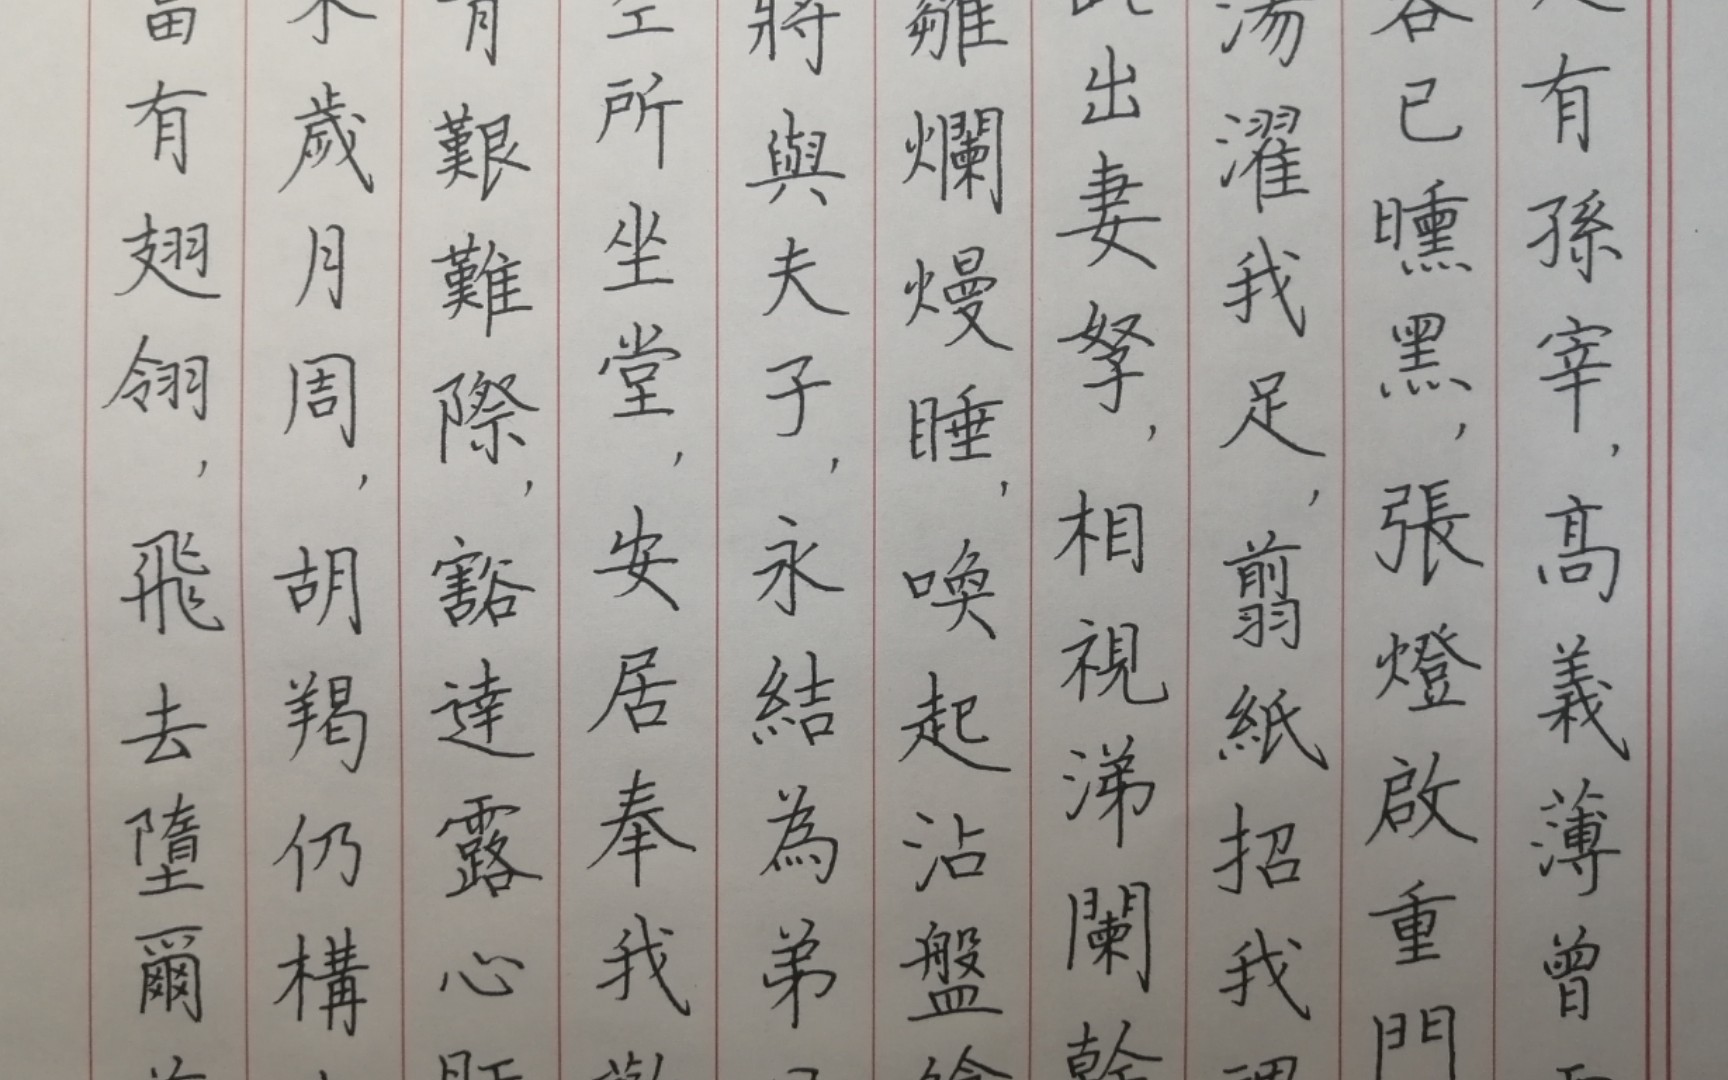 有孫宰，高義薄曾
容已曛黑，張燈啟重門
湯濯我足，翦紙招我
出妻孥，相視涕闌
雛爛熳睡，喚起沾盤
將與夫子，永結為弟
所坐堂，安居奉我
肯艱難際，豁達露心
歲月周，胡羯仍構
當有翅翎，飛去墮爾